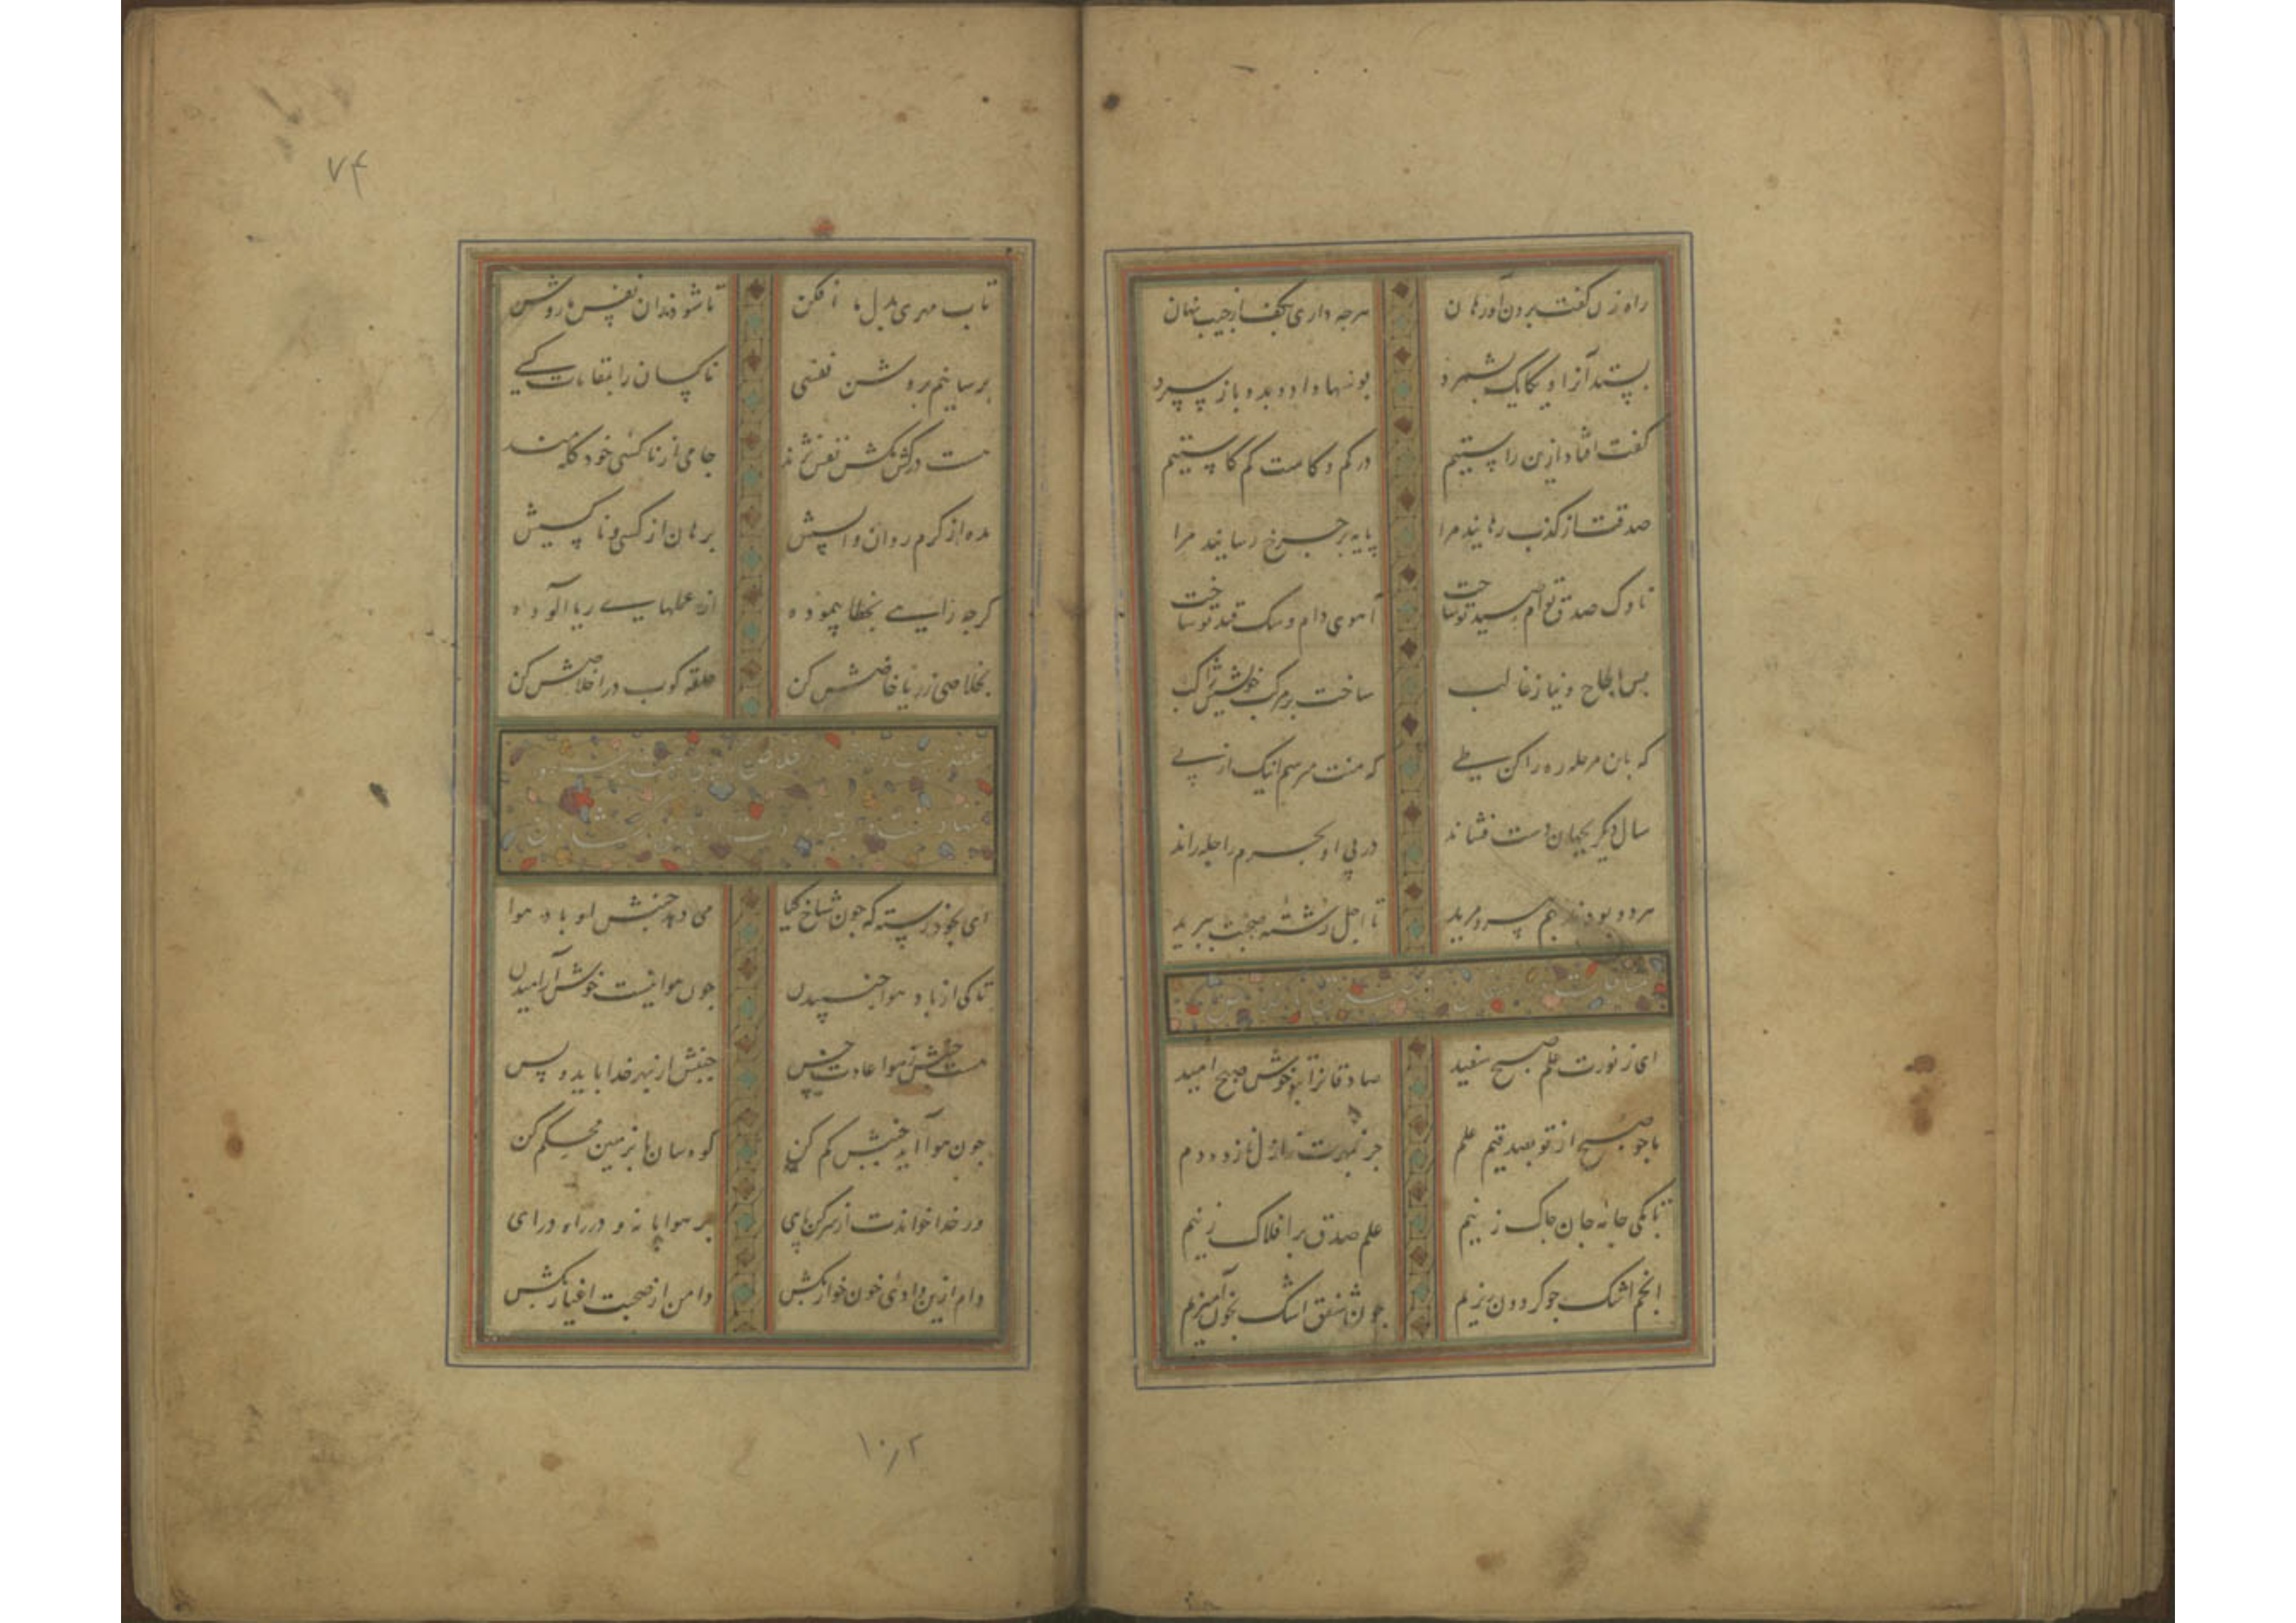 راه زن گفت برون آور هان هرجه داری بکف از جیب نهان
بستد آنرا و یکایک بشمرد داد و بدو باز سپرد
گفت افتاد ازین راستیم در کم و کاست کم کاستیم
صدقت از کذب رهانید مرا پایه بر جرخ رسانید مرا
ناوک صدق توام صید تو ساخت آهوی دام و سک قید تو ساخت
بس بالحاح و نیاز غالب ساخت بر مرکب خویشش راکب
که بان مرحله ره را کن طی که منت میرسم اینک از پی
سال دیکر بجهان دست فشاند در پی او بحرم راحله راند
هر دو بودند بهم پیر و مرید تا اجل رشته صحبت ببرید
مناجات
ای ز نورت علم صبح سفید صادقانرا بتو خوش صبح امید
ما جو صبح از تو بصدقیم علم جز بمهرت
تا بکی جامه جان جاک زنیم علم صدق بر افلاک زنیم
انجم اشک جو کردون ریزیم جون شفق اشک بخون آمیزیم
۷۴
تاب مهری بدل ما افکن تا شود زان نفس ما روشن
برسانیم بروشن نفسی ناکسان را بمقامات کسی
جامی از ناکسی خود کله مند هست در کش مکش نفس نژند
مده از کرم روان واپسیش برهان از کسی و ناکسیش
کرجه زایی بخطا پیموده از عملهای ریا آلوده
بخلاصی ز ریا خاصش کن حلقه کوب در اخلاصش کن
ای بخود رسته که جون شاخ کیا می دهد جنبش تو باد هوا
تا کی از باد هوا جنبیدن جون هوا نیست خوش آرامیدن
هست جنبش ز هوا عادت خس جنبش از بهر خدا باید و بس
جون هوا آید جنبش کم کن کوه سان پا بزمین محکم کن
ور خدا خواندت از سر کن پای بر هوا پا نه و در راه درای
دام ازین وادی خون خوار بکش دامن از صحبت اغیار بکش
۱۰۲